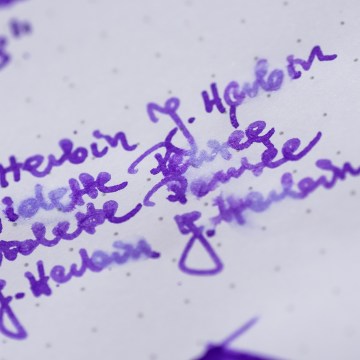 Herbin J. Herbin
iolette Pensée
olette Pensée
J. Herbin. J. Herbin